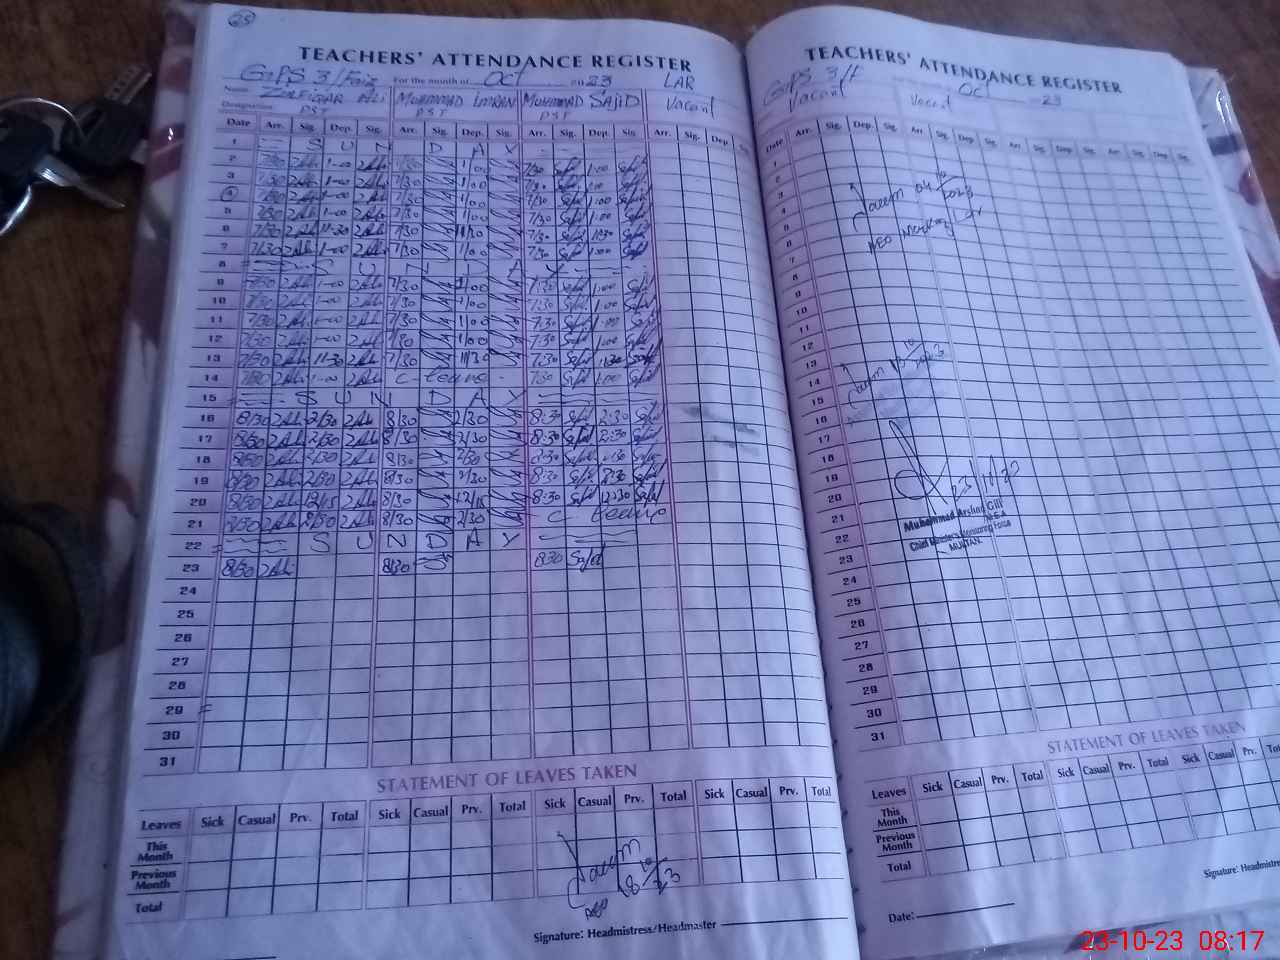 25
TEACHERS' ATTENDANCE REGISTER
GPS 3/Faiz For the month of OCT 23 LAR
Name ZULFIQAR ALI MUHAMMAD IMRAN MUHAMMAD SAJID Vacant
Designation PST PST PST
Date Arr. Sig. Dep. Sig. Arr. Sig. Dep. Sig. Arr. Sig. Dep. Sig. Arr. Sig. Dep. Sig.
1 S U N D A Y
2 7/30 1-00 7/30 1/00 7/30 1:00
3 7/30 1-00 7/30 1/00 7/30 1:00
4 7/30 1-00 7/30 1/00 7/30 1:00
5 7/30 1-00 7/30 1/00 7/30 1:00
6 7/30 11-30 7/30 11/30 7/30 11:30
7 7/30 1-00 7/30 1/00 7:30 1:00
8 S U N D A Y
9 7/30 1-00 7/30 1/00 7:30 1:00
10 7/30 1-00 7/30 1/00 7:30 1:00
11 7/30 1-00 7/30 1/00 7:30 1:00
12 7/30 1-00 7/30 1/00 7:30 1:00
13 7/30 11-30 7/30 11/30 7:30 11:30
14 7/30 1-00 C-leave 7:30 1:00
15 S U N D A Y
16 8/30 2/30 8/30 2/30 8:30 2:30
17 8/30 2/30 8/30 2/30 8:30 2:30
18 8/30 2/30 8/30 2/30 8:30 2:30
19 8/30 2/30 8/30 2/30 8:30 2:30
20 8/30 12/15 8/30 12/15 8:30 12:30
21 8/30 2/30 8/30 2/30 C-leave
22 S U N D A Y
23 8/30 8/30 8:30
24
25
26
27
28
29
30
31
STATEMENT OF LEAVES TAKEN
Leaves Sick Casual Prv. Total Sick Casual Prv. Total Sick Casual Prv. Total Sick Casual Prv. Total
This Month
Previous Month
Total
18/10/23
Signature: Headmistress/Headmaster
TEACHERS' ATTENDANCE REGISTER
GPS 3/F OCT 23
Vacant Vacant
Date Arr. Sig. Dep. Sig. Arr. Sig. Dep. Sig. Arr. Sig. Dep. Sig. Arr. Sig. Dep. Sig.
1
2
3
4
5
6
7
8
9
10
11
12
13
14
15
16
17
18
19
20
21
22
23
24
25
26
27
28
29
30
31
04/10/2023
AEO Markaz
13/10/2023
23/10/23
Muhammad Arshad Gill
M.E.A
Chief Minister's Monitoring Force
MULTAN.
STATEMENT OF LEAVES TAKEN
Leaves Sick Casual Prv. Total Sick Casual Prv. Total Sick Casual Prv. Total
This Month
Previous Month
Total
Signature: Headmistress
Date:
23-10-23 08:17